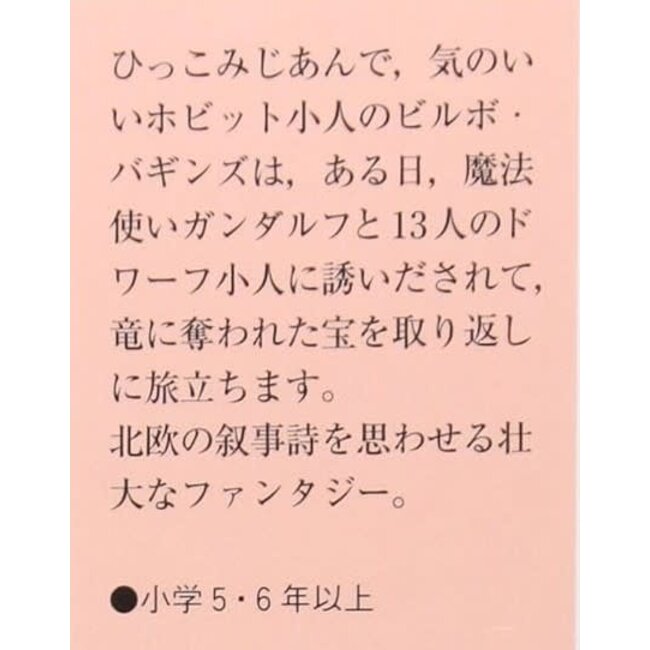 ひっこみじあんで，気のい
いホビット小人のビルボ・
バギンズは，ある日，魔法
使いガンダルフと13人のド
ワーフ小人に誘いだされて，
竜に奪われた宝を取り返し
に旅立ちます。
北欧の叙事詩を思わせる壮
大なファンタジー。
●小学5・6年以上